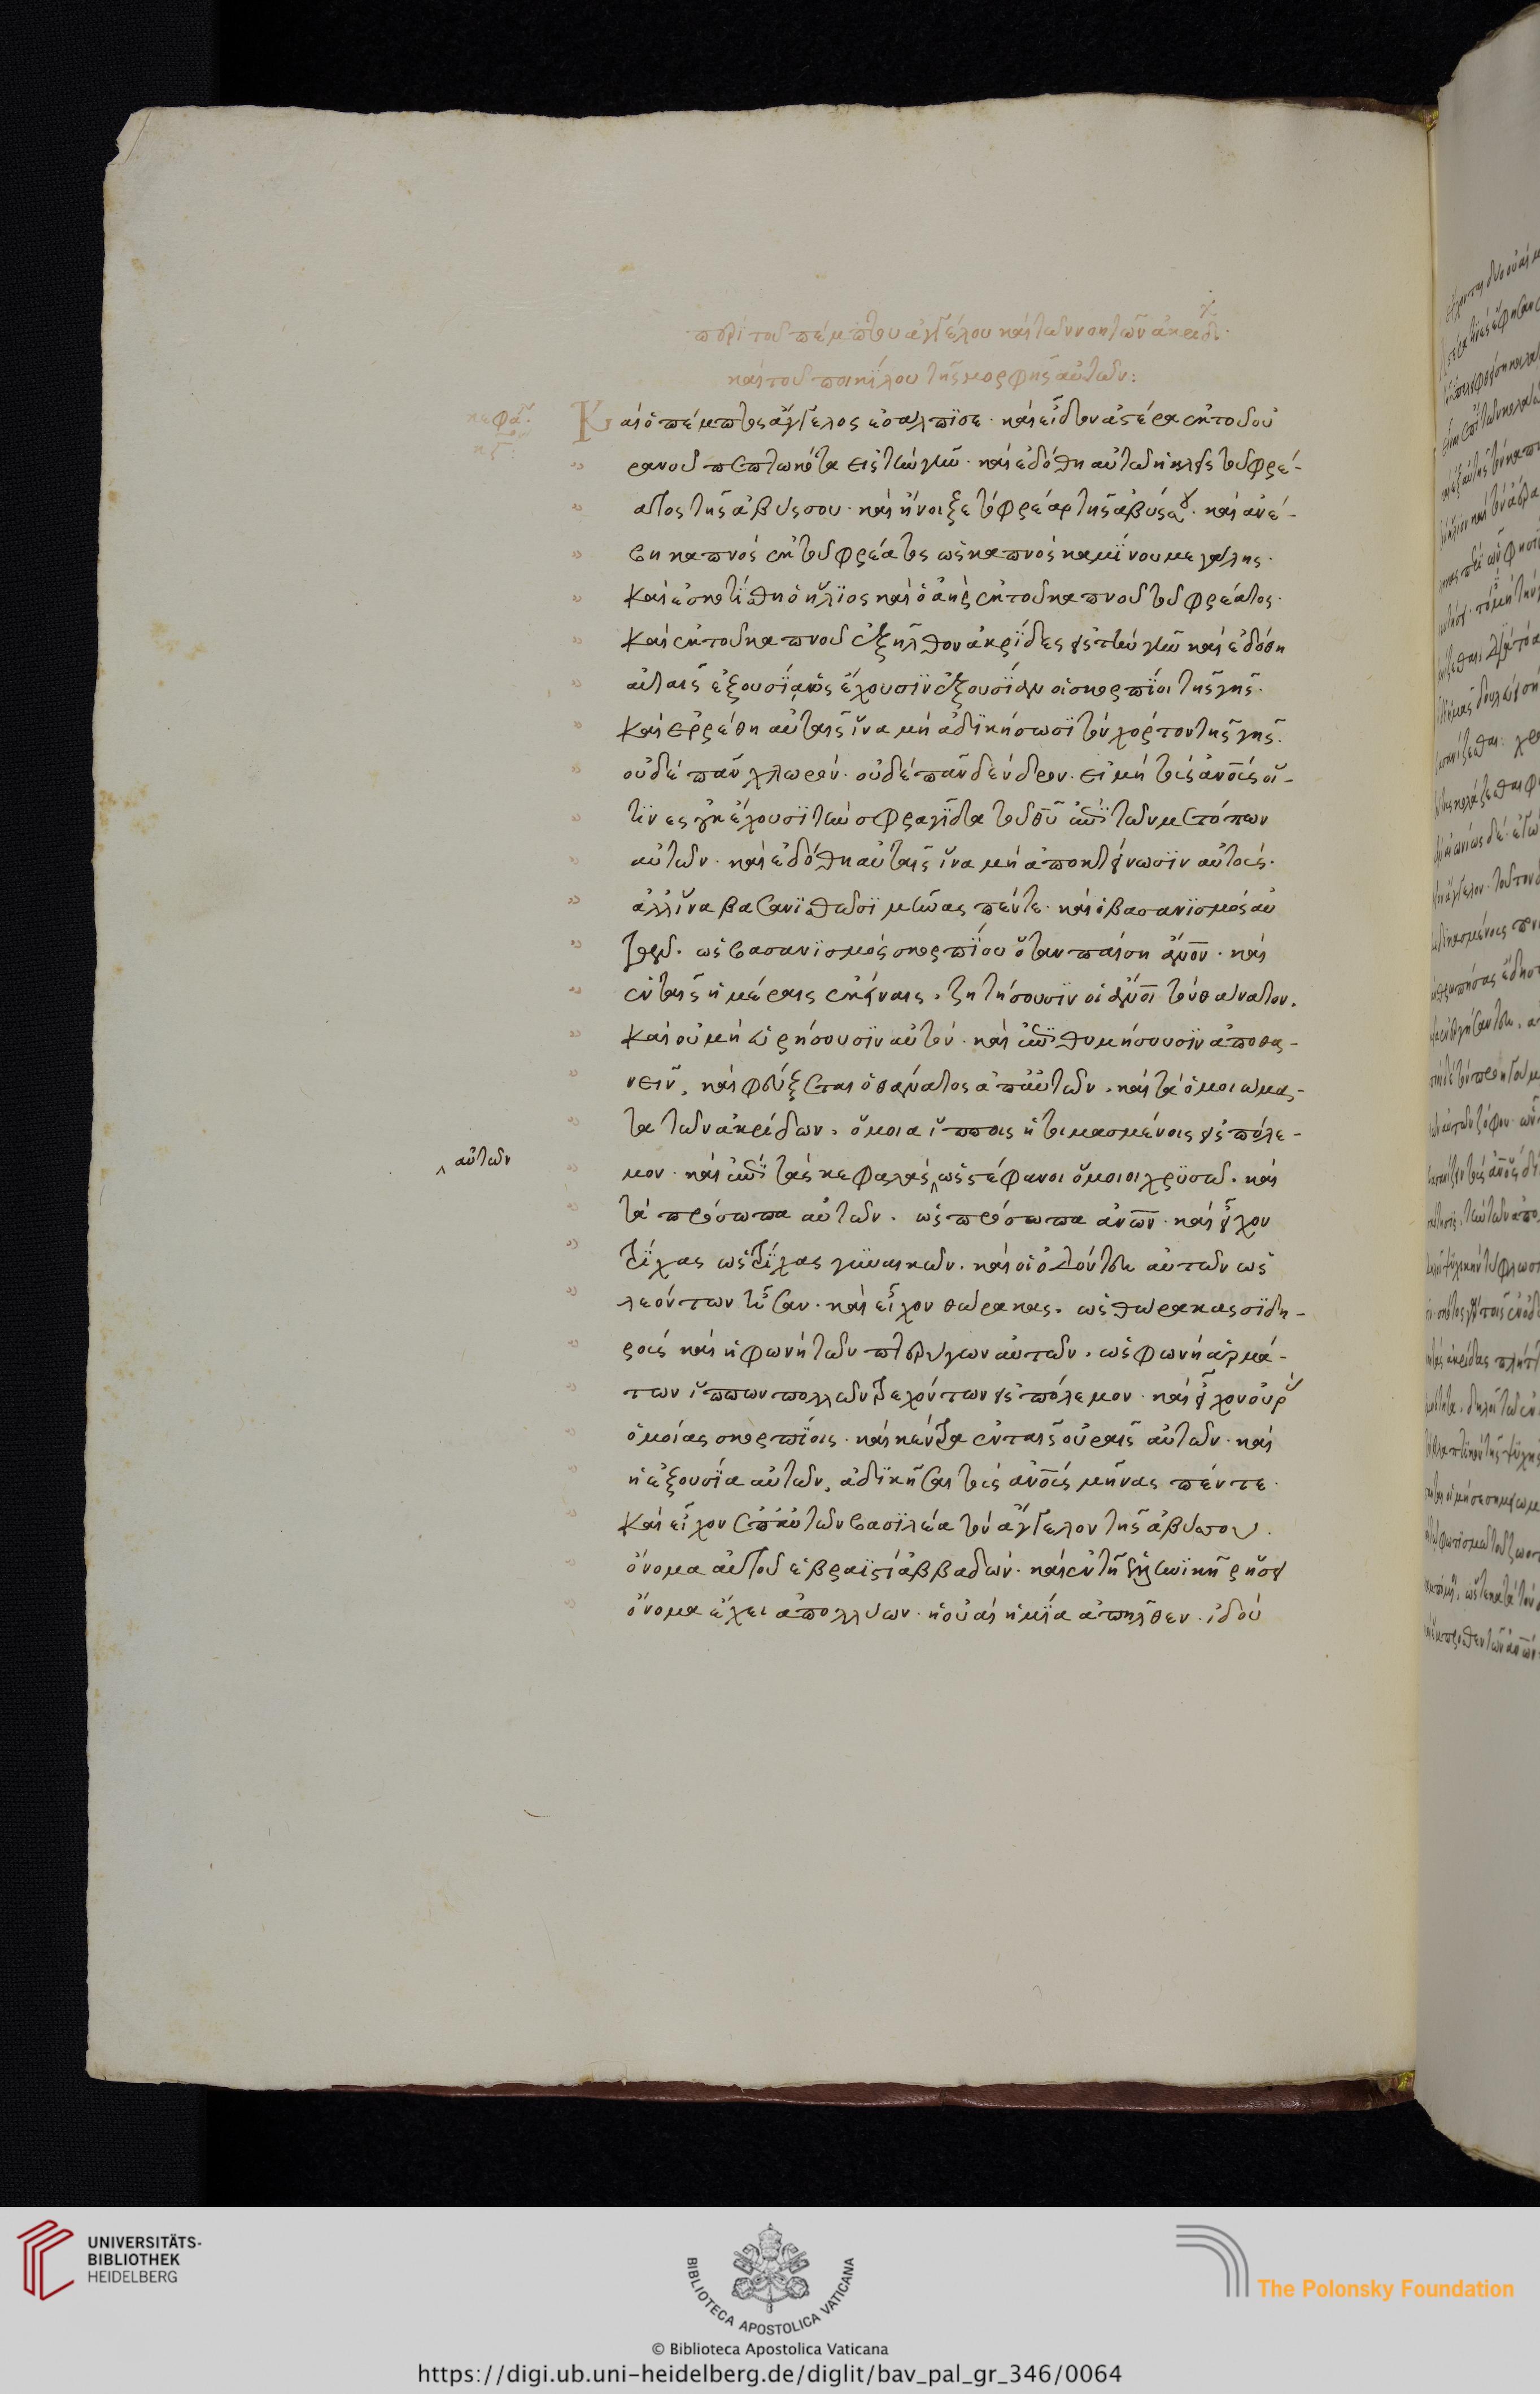 περὶ τοῦ πέμπτου ἀγγέλου καὶ τῶν νοητῶν ἀκρίδ
καὶ τοῦ ποικίλου τῆς μορφῆς αὐτῶν:
κεφά.
Καὶ ὁ πέμπτος ἄγγελος ἐσάλπϊσε· καὶ εἶδον ἀστέρα ἐκ τοῦ οὐ
ρανοῦ πεπτωκότα εἰς τὴν γῆν· καὶ ἐδόθη αὐτῶ ἡ κλεὶς τοῦ φρέ-
ατος τῆς ἀβύσσου· καὶ ἤνοιξε τὸ φρέαρ τῆς ἀβύσσου· καὶ ἀνέ-
βη καπνὸς ἐκ τοῦ φρέατος ὡς καπνὸς καμίνου μεγάλης·
Καὶ ἐσκοτίσθη ὁ ἥλϊος καὶ ὁ ἀὴρ ἐκ τοῦ καπνοῦ τοῦ φρέατος·
Καὶ ἐκ τοῦ καπνοῦ ἐξῆλθον ἀκρῖδες εἰς τὴν γῆν καὶ ἐδόθη
αὐταῖς ἐξουσία ὡς ἔχουσϊν ἐξουσίαν οἱ σκορπίοι τῆς γῆς·
Καὶ ἐρρέθη αὐταῖς ἵνα μὴ ἀδϊκήσωσϊ τὸν χόρτον τῆς γῆς·
οὐδὲ πᾶν χλωρόν· οὐδὲ πᾶν δένδρον· εἰ μὴ τοὺς ἀνους οἵ-
τϊνες οὐκ ἔχουσϊ τὴν σφραγῖδα τοῦ θυ ἐπὶ τῶν μετόπων
αὐτῶν· καὶ ἐδόθη αὐταῖς ἵνα μὴ ἀποκτείνωσϊν αὐτούς·
ἀλλ' ἵνα βασανϊσθῶσϊ μῆνας πέντε· καὶ ὁ βασανϊσμὸς αὐ
τῶν· ὡς βασανϊσμὸς σκορπίου ὅταν παίση ἄνον· καὶ
ἐν ταῖς ἡμέραις ἐκείναις· ζητήσουσϊν οἱ ἄνοι τὸν θάνατον·
Καὶ οὐ μὴ εὑρήσουσϊν αὐτόν· καὶ ἐπιθυμήσουσϊν ἀποθα-
νεῖν, καὶ φεύξεται ὁ θάνατος ἀπ' αὐτῶν· καὶ τὰ ὁμοιώμα-
τα τῶν ἀκρίδων· ὅμοια ἵπποις ἡτοιμασμένοις εἰς πόλε-
μον· καὶ ἐπὶ τὰς κεφαλὰς ὡς στέφανοι ὅμοιοι χρϋσῶ· καὶ
αὐτῶν
τὰ πρόσωπα αὐτῶν· ὡς πρόσωπα ἀνων· καὶ εἶχον
τρίχας ὡς τρίχας γυναικῶν· καὶ οἱ ὀδόντες αὐτῶν ὡς
λεόντων ἦσαν· καὶ εἶχον θώρακας· ὡς θώρακας σϊδη-
ροῦς καὶ ἡ φωνὴ τῶν πτερύγων αὐτῶν· ὡς φωνὴ ἁρμά-
των ἵππων πολλῶν τρεχόντων εἰς πόλεμον· καὶ εἶχον οὐρ
ὁμοίας σκορπίοις· καὶ κέντρα ἐν ταῖς οὐραῖς αὐτῶν· καὶ
ἡ ἐξουσία αὐτῶν, ἀδϊκῆσαι τοὺς ἀνους μῆνας πέντε·
Καὶ εἶχον ἐπ' αὐτῶν βασϊλέα τὸν ἄγγελον τῆς ἀβύσσου·
ὄνομα αὐτοῦ ἑβραϊστὶ ἀββαδών· καὶ ἐν τῆ ἑλληνικῆ
ὄνομα ἔχει ἀπολλύων· ἡ οὐαὶ ἡ μία ἀπῆλθεν· ἰδοὺ
UNIVERSITÄTS-
BIBLIOTHEK
HEIDELBERG
BIBLIOTECA APOSTOLICA VATICANA
The Polonsky Foundation
© Biblioteca Apostolica Vaticana
https://digi.ub.uni-heidelberg.de/diglit/bav_pal_gr_346/0064